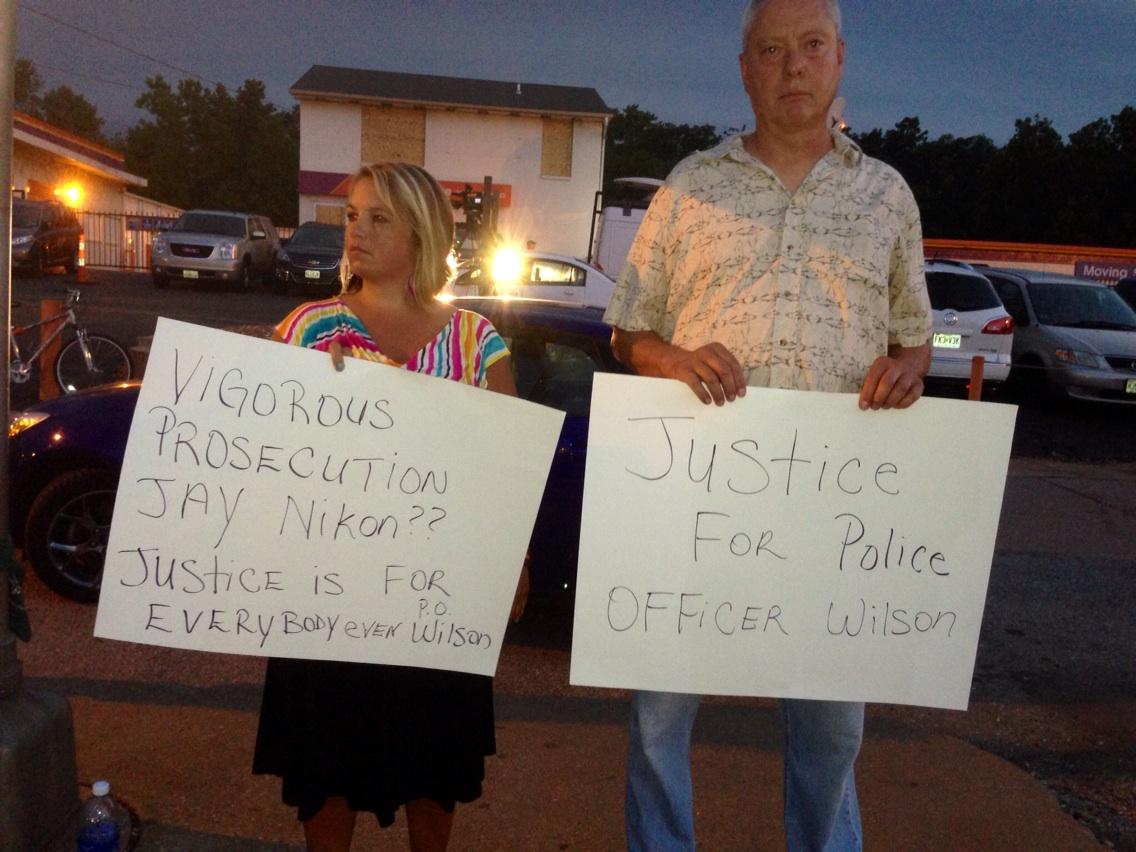 VIGOROUS
PROSECUTION
JAY Nikon??
JUSTICE is FOR
EVERYBODY EVEN P.O. Wilson
Justice
FOR Police
OFFICER Wilson
Moving